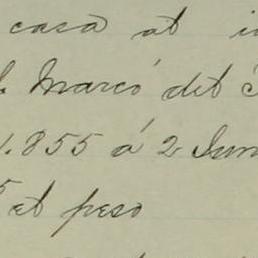 casa al
Marcó del
1.855 á 2 Jun
5 el peso